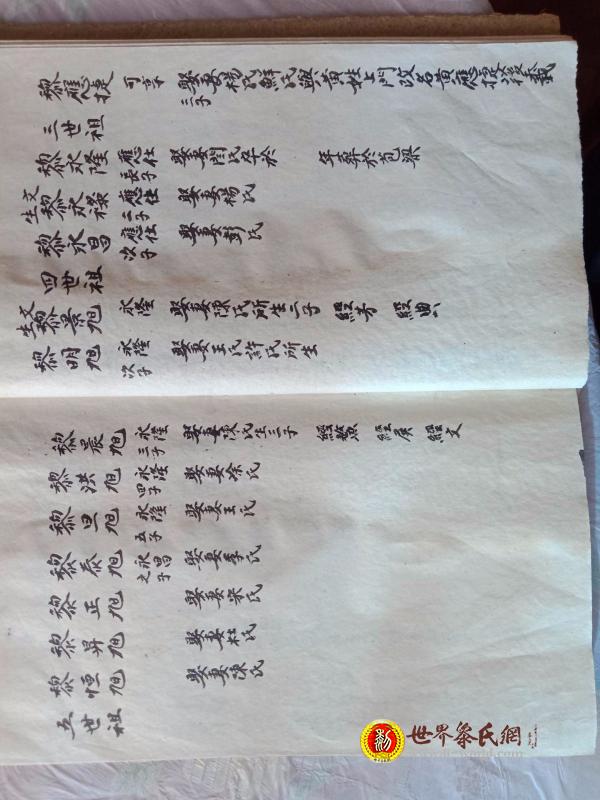 黎應捷 可享三子 娶妻楊氏鮮氏與黃姓上門改名黃應捷後
三世祖
黎永隆 應仕長子 娶妻閆氏卒於 年葬於苞梁
文生黎永祿 應仕二子 娶妻楊氏
黎永昌 應仕次子 娶妻彭氏
四世祖
文生黎景旭 永隆 娶妻陳氏所生二子 經芳 經典
黎明旭 永隆次子 娶妻王氏許氏所生
黎晨旭 永隆三子 娶妻陳氏生三子 經 經廣 經文
黎洪旭 永隆四子 娶妻徐氏
黎旦旭 永隆五子 娶妻王氏
黎泰旭 永昌之子 娶妻李氏
黎正旭 娶妻宋氏
黎昇旭 娶妻杜氏
黎恒旭 娶妻陳氏
五世祖
世界黎氏網